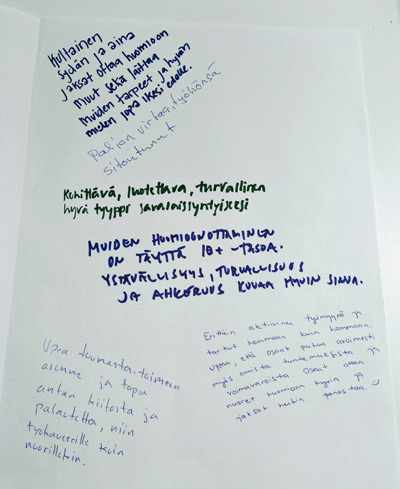 Kultainen
sydän ja aina
jaksat ottaa huomioon
muut sekä laittaa
muiden tarpeet ja hyvän
mielen jopa itsesi edelle.
Paljon virtaa, työhönsä
sitoutunut
Kehittävä, luotettava, turvallinen
hyvä tyyppi savolaissyntyiseksi
MUIDEN HUOMIOONOTTAMINEN
ON TÄYTTÄ 10+ -TASOA.
YSTÄVÄLLISYYS, TURVALLISUUS
JA AHKERUUS KUVAA HYVIN SINUA.
Upea tuumasta-toimeen
asenne ja tapa
antaa kiitosta ja
palautetta, niin
työkavereille kuin
nuorillekin.
Erittäin aktiivinen työmyyrä ja
tartut hommaan kuin hommaan.
Upeaa, että osaat puhua avoimesti
myös omista tuntemuksista ja
voimavaroista. Osaat ottaa
nuoret huomioon hyvin ja
jaksat heihin panostaa. :)